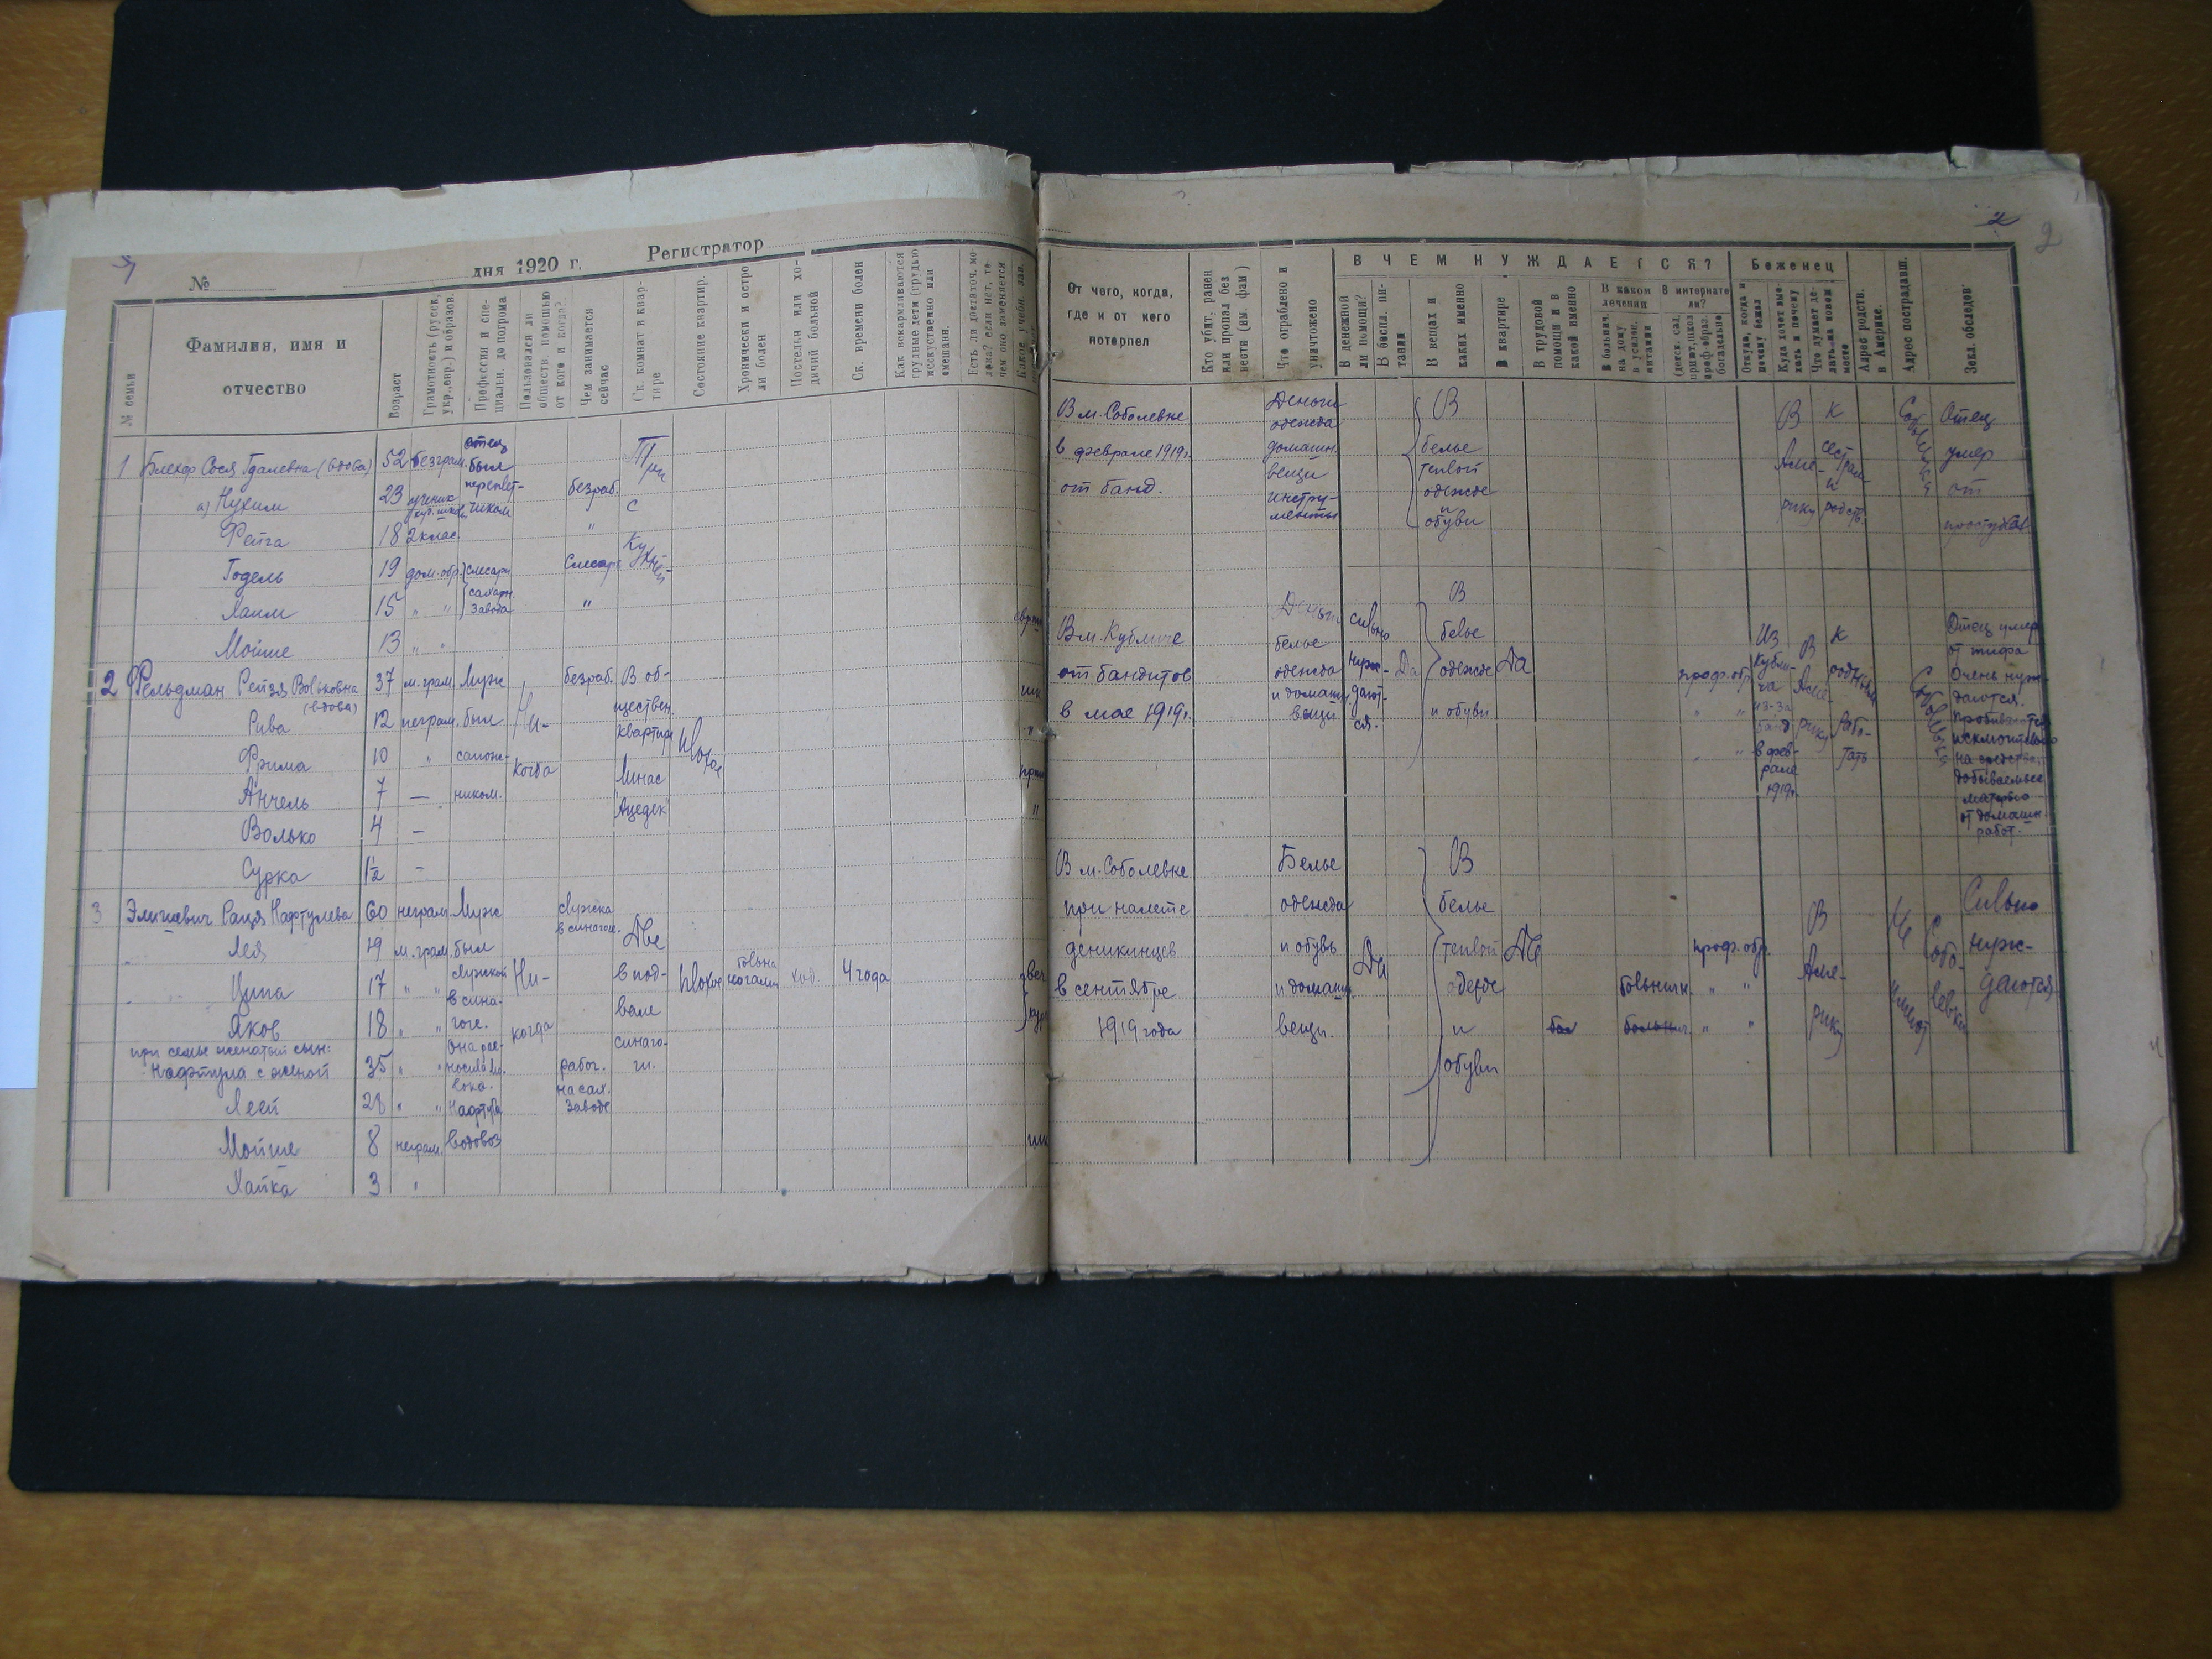 №
дня 1920 г.
Регистратор
№ семьи
Фамилия, имя и
отчество
Возраст
Грамотность (русск,
укр.,евр.) и образов.
Профессия и спе-
циальн. до погрома
Пользовался ли
обществ. помощью
от кого и когда?
Чем занимается
сейчас
Ск. комнат в квар-
тире
Состояние квартир.
Хронически и остро
ли болен
Постельн или хо-
дячий больной
Ск. времени болен
Как вскармливаются
грудные дети (грудью
искусственно или
смешанн.
Есть ли достаточ. мо-
локо? если нет, то
чем оно заменяется
1 Блехер Сося Гдалевна (вдова) 52 безграм.
отец
был
переплет-
чиком
Три
с
кухней
а) Нухим 23 ученик
безраб.
Фейга 18 2 клас. "
Годель 19 дом. обр. слесари
сахарн.
завода
Слесарь
Хаим 15 " " "
Мойше 13 " "
2 Фельдман Рейзя Вольковна
(вдова)
37 м. грам. Муж безраб. В об-
ществен.
квартире
Рива 12 неграм. был Ни-
плохое
Фрима 10 " сапож- когда Линас
Анчель 7 — ником. "Ацедек"
Волько 4 —
Сурка 1½ —
3 Эликевич Рахця Нафтулева 60 неграм. Муж служка
в синагоге. Две
Лея 19 м. грам. был
Ципа 17 " " служкой Ни- в под- плохое больна
ногами ход. 4 года
Яков 18 " " в сина-
гоге. когда вале
при семье женатый сын: Она раз-
синаго-
Нафтула с женой 35 " " носила мо-
локо. рабоч. ги.
на сах.
Леей 28 " " Нафтула заводе
Мойше 8 неграм. водовоз
Хайка 3 "
2
2
От чего, когда,
где и от кего
потерпел
Кто убит, ранен
или пропал без
вести (им. фам)
Что ограблено и
уничтожено
В ЧЕМ НУЖДАЕТСЯ?
В денежной
ли помощи?
В беспл. пи-
тании
В вещах и
каких именно
В квартире
В трудовой
помощи и в
какой именно
В каком
лечении
В больниц.
на дому
в усилен.
питании
В интернате
ли?
(детск. сад,
приют, школ
проф-образ.
богадельне
Беженец
Откуда, когда и
почему бежал
Куда хочет вые-
хать и почему
Что думает де-
лать на новом
месте
Адрес родств.
в Америке.
Адрес пострадавш.
Закл. обследов.
В м. Соболевке
в феврале 1919 г.
от банд.
Деньги
одежда
домашн.
вещи
инстру-
менты
В
белье
теплой
одежде
и
обуви
В
Аме-
рику
к
сестрам
и
родств.
Соболевка
Отец
умер
от
простуды
В м. Кубличе
от бандитов
в мае 1919 г.
Деньги
белье
одежда
и домашн.
вещи
сильно
нуж-
дают-
ся.
Да
В
белье
одежде
и обуви
Да
проф. обр.
" "
" "
Из
Кубли-
ча
из-за
банд
в фев-
рале
1919 г.
В
Аме-
рику
к
родным
рабо-
тать
Соболевка
Отец умер
от тифа
Очень нуж-
даются.
Пробиваются
исключительно
на средства,
добываемые
матерью
от домашн.
работ.
В м. Соболевке
при налете
деникинцев
в сентябре
1919 года
Белье
одежда
и обувь
и домашн.
вещи.
Да
В
белье
теплой
одежде
и
обуви
Две
больничн.
больнич.
проф. обр.
" "
" "
В
Аме-
рику
Не
имеют
Собо-
левка
Сильно
нуж-
даются